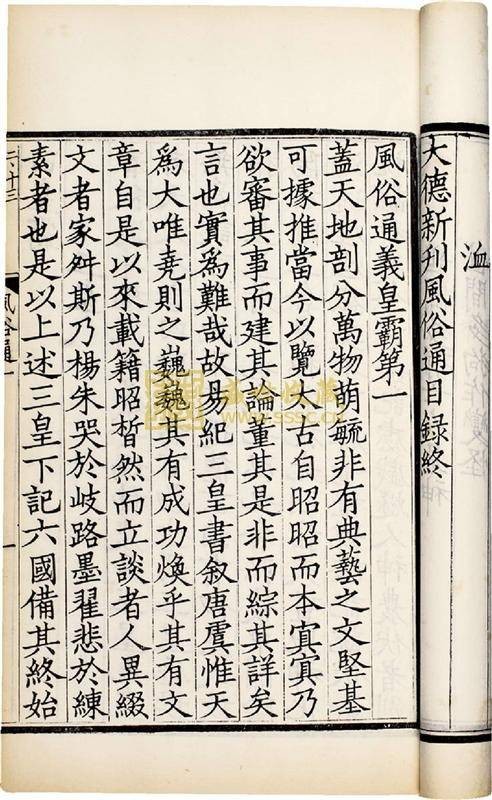 洫
大德新刊風俗通目録終
風俗通義皇霸第一
蓋天地剖分萬物萌毓非有典藝之文堅基
可據推當今以覽太古自昭昭而本寘寘乃
欲審其事而建其論董其是非而綜其詳矣
言也實爲難哉故易紀三皇書叙唐虞惟天
爲大唯堯則之巍巍其有成功煥乎其有文
章自是以來載籍昭晳然而立談者人異綴
文者家舛斯乃楊朱哭於岐路墨翟悲於練
素者也是以上述三皇下記六國備其終始
風俗通一
二十三
www.sssc.cn